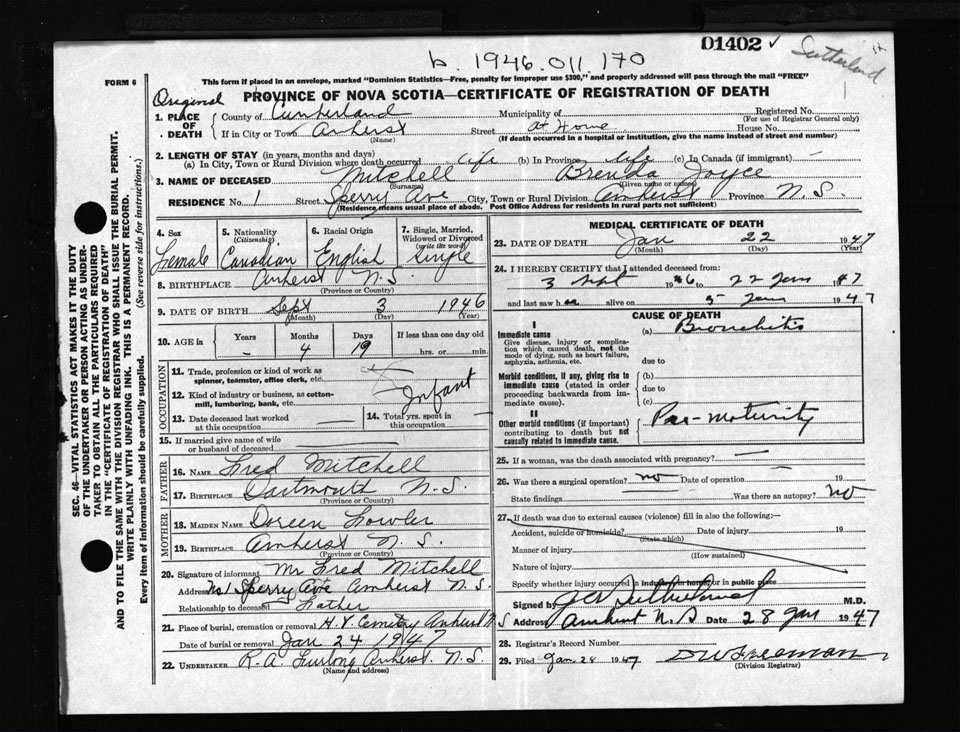 01402 ✓
Sutherland
b. 1946.011.170
FORM 6
This form if placed in an envelope, marked "Dominion Statistics—Free, penalty for improper use $300," and properly addressed will pass through the mail "FREE"
Original
PROVINCE OF NOVA SCOTIA—CERTIFICATE OF REGISTRATION OF DEATH
1. PLACE OF DEATH { County of Cumberland Municipality of Registered No.
(For use of Registrar General only)
If in City or Town Amherst Street at Home House No.
(Name) (If death occurred in a hospital or institution, give the name instead of street and number)
2. LENGTH OF STAY (in years, months and days)
(a) In City, Town or Rural Division where death occurred life (b) In Province life (c) In Canada (if immigrant) —
3. NAME OF DECEASED Mitchell Brenda Joyce
(Surname) (Given name or names)
RESIDENCE No. 1 Street Sperry Ave City, Town or Rural Division Amherst Province N.S.
(Residence means usual place of abode. Post Office Address for residents in rural parts not sufficient)
4. Sex Female
5. Nationality (Citizenship) Canadian
6. Racial Origin English
7. Single, Married, Widowed or Divorced (write the word) Single
8. BIRTHPLACE Amherst N.S.
(Province or Country)
9. DATE OF BIRTH Sept 3 1946
(Month) (Day) (Year)
10. AGE in { Years — Months 4 Days 19 If less than one day hrs. or min.
OCCUPATION
11. Trade, profession or kind of work as spinner, teamster, office clerk, etc.
12. Kind of industry or business, as cotton-mill, lumbering, bank, etc. Infant
13. Date deceased last worked at this occupation —
14. Total yrs. spent in this occupation —
15. If married give name of wife or husband of deceased —
FATHER
16. NAME Fred Mitchell
17. BIRTHPLACE Dartmouth N.S.
(Province or Country)
MOTHER
18. MAIDEN NAME Doreen Fowler
19. BIRTHPLACE Amherst N.S.
(Province or Country)
20. Signature of informant Mr Fred Mitchell
Address No 1 Sperry Ave Amherst N.S.
Relationship to deceased Father
21. Place of burial, cremation or removal H.V. Cemetry Amherst N S
Date of burial or removal Jan 24 1947
22. UNDERTAKER R.A. Furlong Amherst. N.S.
(Name and address)
MEDICAL CERTIFICATE OF DEATH
23. DATE OF DEATH Jan 22 1947
(Month) (Day) (Year)
24. I HEREBY CERTIFY that I attended deceased from:
3 Sept 1946 to 22 Jan 1947
and last saw h er alive on 5 Jan 1947
CAUSE OF DEATH
I
Immediate cause (a) Bronchitis
Give disease, injury or complication which caused death, not the mode of dying, such as heart failure, asphyxia, asthenia, etc. due to
Morbid conditions, if any, giving rise to immediate cause (stated in order proceeding backwards from immediate cause). (b)
due to
(c)
II
Other morbid conditions (if important) contributing to death but not causally related to immediate cause. Pre-maturity
25. If a woman, was the death associated with pregnancy? —
26. Was there a surgical operation? no Date of operation 19
State findings Was there an autopsy? no
27. If death was due to external causes (violence) fill in also the following:—
Accident, suicide or homicide? Date of injury 19
(State which)
Manner of injury
(How sustained)
Nature of injury
Specify whether injury occurred in industry, in home, or in public place
Signed by Sutherland M.D.
Address Amherst N.S Date 28 Jan 1947
28. Registrar's Record Number
29. Filed Jan 28 1947 D W Freeman
(Division Registrar)
SEC. 46—VITAL STATISTICS ACT MAKES IT THE DUTY OF THE UNDERTAKER OR PERSON ACTING AS UNDERTAKER TO OBTAIN ALL THE PARTICULARS REQUIRED IN THE "CERTIFICATE OF REGISTRATION OF DEATH" AND TO FILE THE SAME WITH THE DIVISION REGISTRAR WHO SHALL ISSUE THE BURIAL PERMIT.
WRITE PLAINLY WITH UNFADING INK. THIS IS A PERMANENT RECORD.
Every item of information should be carefully supplied. (See reverse side for instructions.)